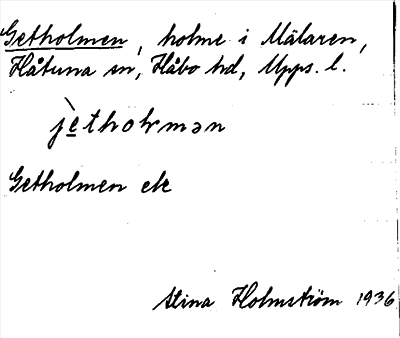 Getholmen, holme i Mälaren,
Håtuna sn, Håbo hd, Upps. l.
jètholmən
Getholmen ek
Stina Holmström 1936